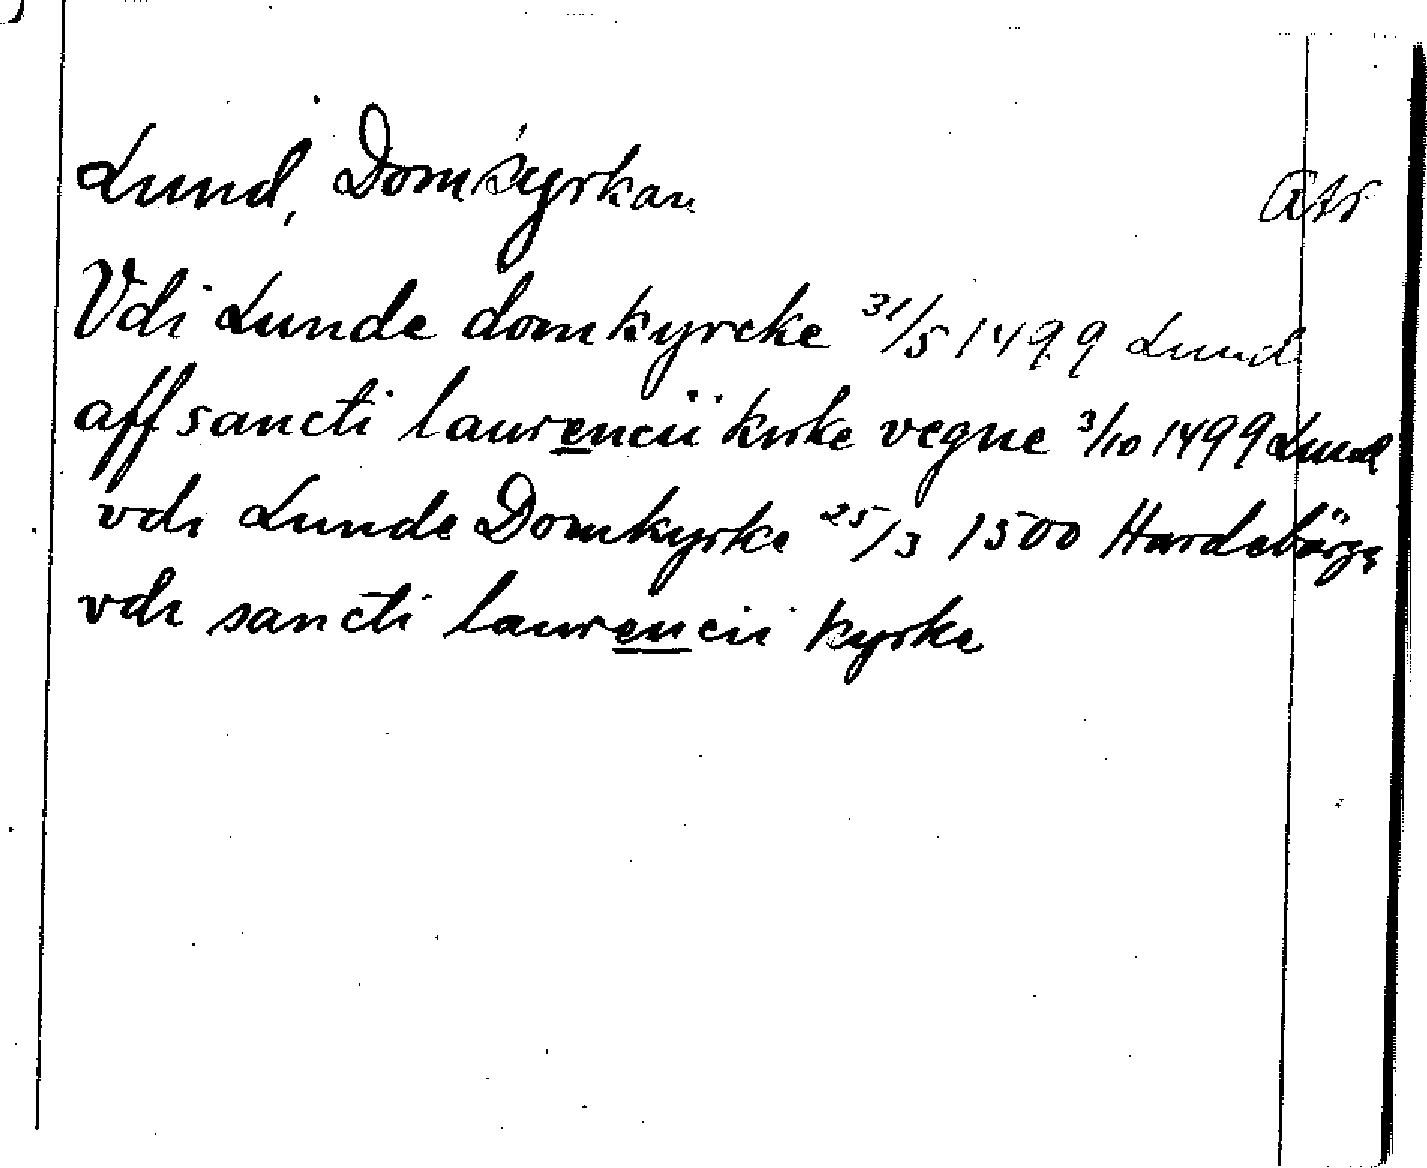 Lund, Domkyrkan
Vdi Lunde domkyrcke 31/5 1499 Lund
aff sancti laurencii kirke vegne 3/10 1499 Lund
vdi Lunde Domkyrke 25/3 1500 Hardebärge
vdi sancti laurencii kyrke